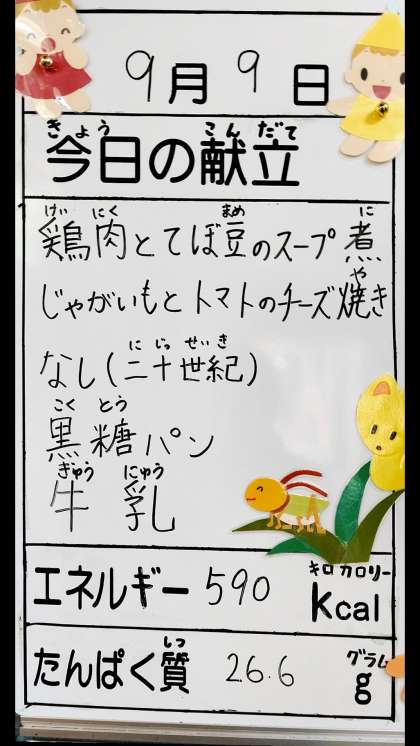 9月9日
きょう こんだて
今日の献立
けい にく まめ に
鶏肉とてぼ豆のスープ煮
や
じゃがいもとトマトのチーズ焼き
にじっせいき
なし(二十世紀)
こく とう
黒糖パン
ぎゅう にゅう
牛 乳
キロカロリー
エネルギー 590 kcal
しつ グラム
たんぱく質 26.6 g